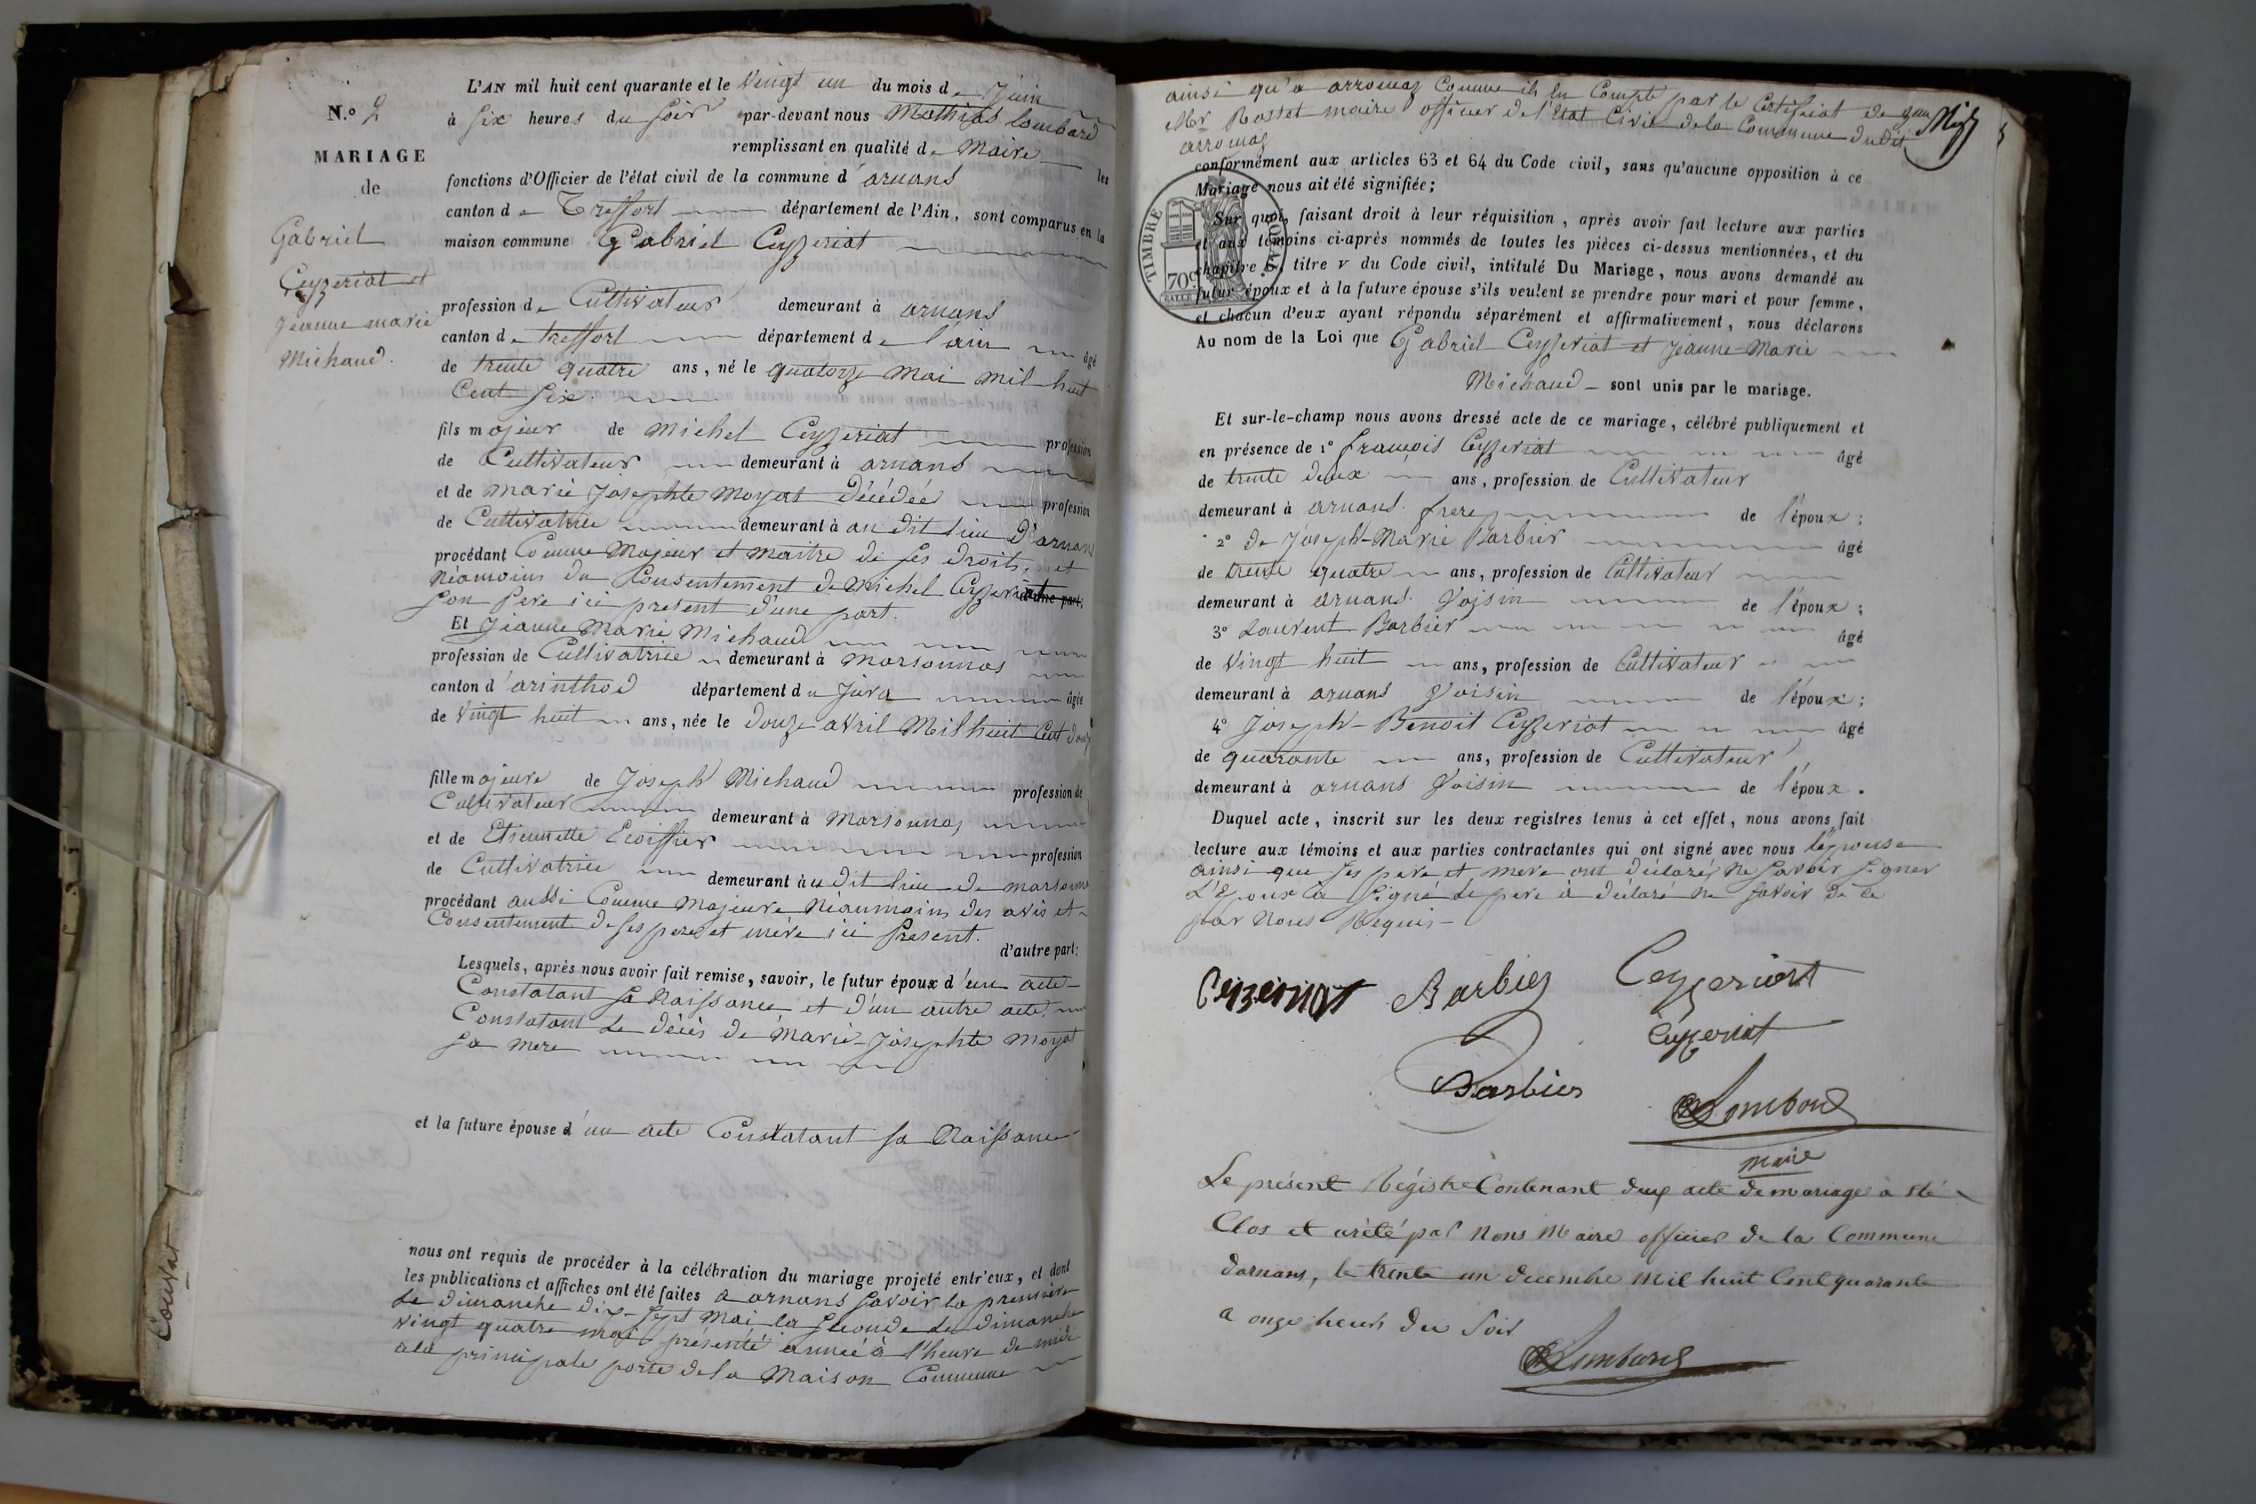 N.° 2
MARIAGE
de
Gabriel
Ceyzeriat et
Jeanne marie
Michaud.
L'AN mil huit cent quarante et le Vingt un du mois de Juin
à Six heures du Soir par-devant nous Mathias Lombard
remplissant en qualité de Maire les
fonctions d'Officier de l'état civil de la commune d'arnans
canton de Treffort département de l'Ain, sont comparus en la
maison commune Gabriel Ceyzeriat
profession de Cultivateur demeurant à arnans
canton de treffort département de l'ain âgé
de trente quatre ans, né le quatorze Mai mil huit
Cent Six.
fils majeur de Michel Ceyzeriat profession
de Cultivateur demeurant à arnans
et de marie Josephte Moyat Décédée profession
de Cultivatrice demeurant à au dit lieu D'arnans
procédant Comme Majeur et maitre de ses droits, et
Néamoins du Consentement de Michel Ceyzeriat d'une part;
son pere ici present d'une part.
Et Jeanne Marie Michaud
profession de Cultivatrice demeurant à Marsonnas
canton d'arinthod département du Jura âgée
de Vingt huit ans, née le Douze avril Mil huit Cent douze
fille majeure de Joseph Michaud profession de
Cultivateur demeurant à Marsonnas
et de Etiennette Ecoiffier profession
de Cultivatrice demeurant à u dit lieu de marsonnas
procédant aussi Comme Majeure Néaumoins des avis et
Consentement de ses pere et mère ici Present.
d'autre part:
Lesquels, après nous avoir fait remise, savoir, le futur époux d'un acte
Constatant sa Naissance et d'un autre acte
Constatant Le décès de Marie-Josephte Moyat
sa mere
et la future épouse d'un acte Constatant sa Naissance
nous ont requis de procéder à la célébration du mariage projeté entr'eux, et dont
les publications et affiches ont été faites a arnans Savoir la premiere
Le Dimanche dix-sept Mai la seconde Le dimanche
vingt quatre mai présente année à l'heure de midi
ala principale porte de la Maison Commune
ainsi qu'a arromas Comme il en Compte par le Certificat de
Mr Rostet maire officier de l'Etat Civil de la Commune dudit
arromas
conformément aux articles 63 et 64 du Code civil, sans qu'aucune opposition à ce
Mariage nous ait été signifiée;
TIMBRE ROYAL
70c
Sur quoi, faisant droit à leur réquisition, après avoir fait lecture aux parties
et aux témoins ci-après nommés de toutes les pièces ci-dessus mentionnées, et du
chapitre 6, titre v du Code civil, intitulé Du Mariage, nous avons demandé au
futur époux et à la future épouse s'ils veulent se prendre pour mari et pour femme,
et chacun d'eux ayant répondu séparément et affirmativement, nous déclarons
Au nom de la Loi que Gabriel Ceyzeriat et Jeanne Marie
Michaud sont unis par le mariage.
Et sur-le-champ nous avons dressé acte de ce mariage, célébré publiquement et
en présence de 1° françois Ceyzeriat âgé
de trente deux ans, profession de Cultivateur
demeurant à arnans. frere de l'époux;
2° de Joseph-Marie Barbier âgé
de trente quatre ans, profession de Cultivateur
demeurant à arnans. Voisin de l'époux;
3° Laurent Barbier âgé
de Vingt huit ans, profession de Cultivateur
demeurant à arnans Voisin de l'époux;
4° Joseph-Benoit Ceyzeriat âgé
de quarante ans, profession de Cultivateur
demeurant à arnans Voisin de l'époux.
Duquel acte, inscrit sur les deux registres tenus à cet effet, nous avons fait
lecture aux témoins et aux parties contractantes qui ont signé avec nous l'épouse
ainsi que ses pere et mere ont déclarés Ne Savoir signer
L'Epoux a signé Le pere à déclaré ne savoir de ce
par Nous Requis
Ceyzeriat Barbier Ceyzeriat
Ceyzeriat
Barbier
Lombard
Maire
Le présent Régistre Contenant deux acte de mariage à été
Clos et arèté par Nous Maire officier de la Commune
Darnans, le trente un decembre Mil huit Cent quarante
a onze heurs du Soir
Lombard
Couvat